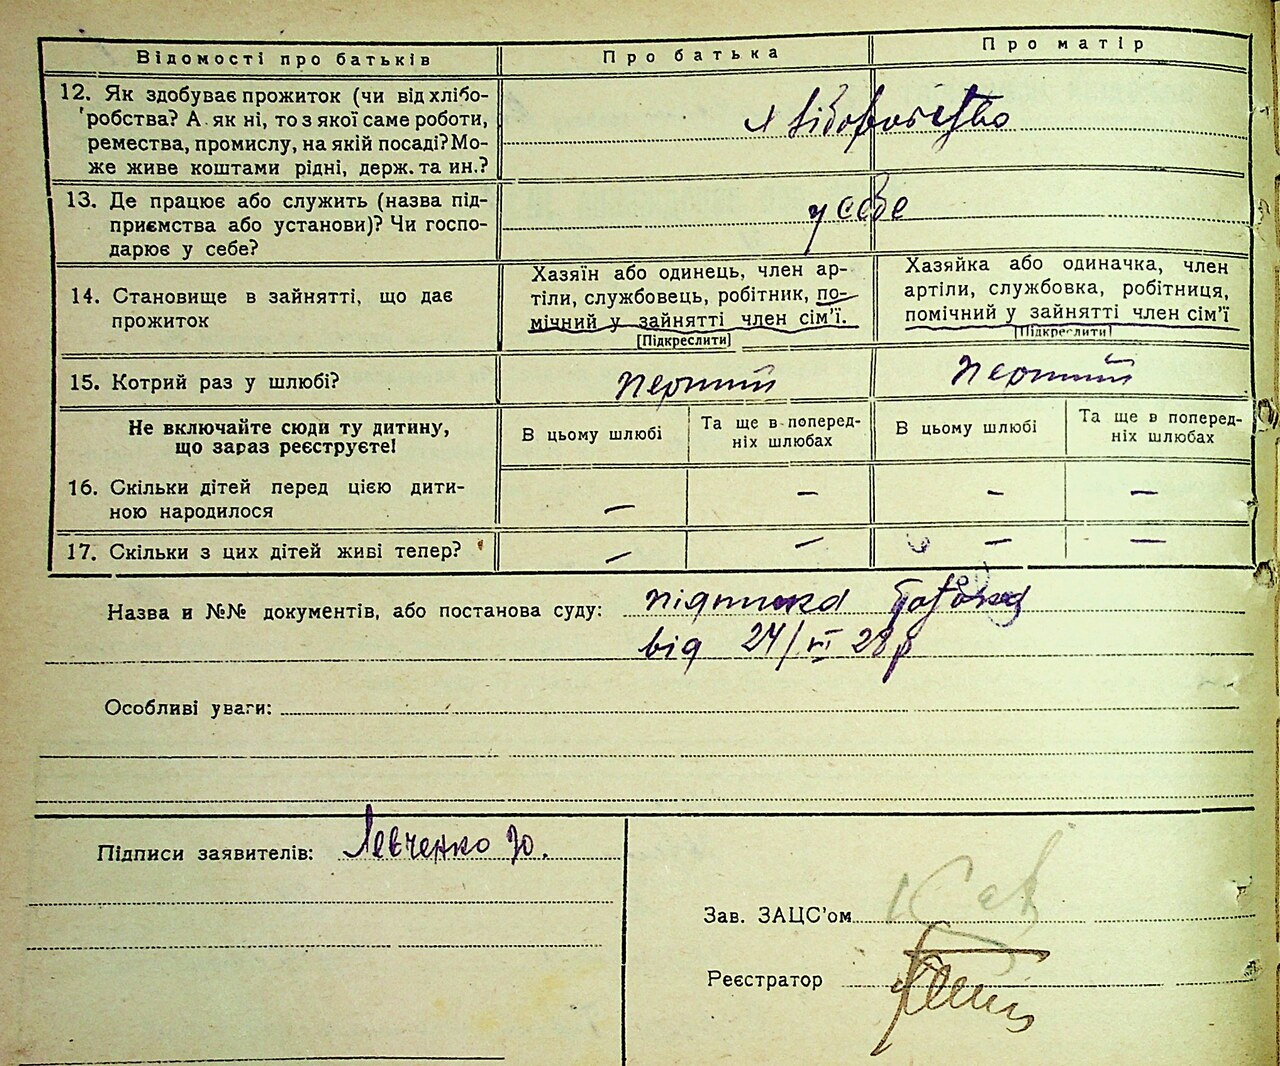 Відомості про батьків Про батька Про матір
12. Як здобуває прожиток (чи від хлібо-
робства? А як ні, то з якої саме роботи,
ремества, промислу, на якій посаді? Мо-
же живе коштами рідні, держ. та ин.?
хліборобство
13. Де працює або служить (назва під-
приємства або установи)? Чи госпо-
дарює у себе?
у себе
14. Становище в зайнятті, що дає
прожиток
Хазяїн або одинець, член ар-
тіли, службовець, робітник, по-
мічний у зайнятті член сім'ї.
[Підкреслити]
Хазяйка або одиначка, член
артіли, службовка, робітниця,
помічний у зайнятті член сім'ї
[Підкреслити]
15. Котрий раз у шлюбі? перший перший
Не включайте сюди ту дитину,
що зараз реєструєте!
В цьому шлюбі
Та ще в поперед-
ніх шлюбах
В цьому шлюбі
Та ще в поперед-
ніх шлюбах
16. Скільки дітей перед цією дити-
ною народилося
— — — —
17. Скільки з цих дітей живі тепер? — — — —
Назва и №№ документів, або постанова суду: підписка батька
від 24/VI 28 р
Особливі уваги:
Підписи заявителів: Левченко Ю.
Зав. ЗАЦС'ом
Реєстратор